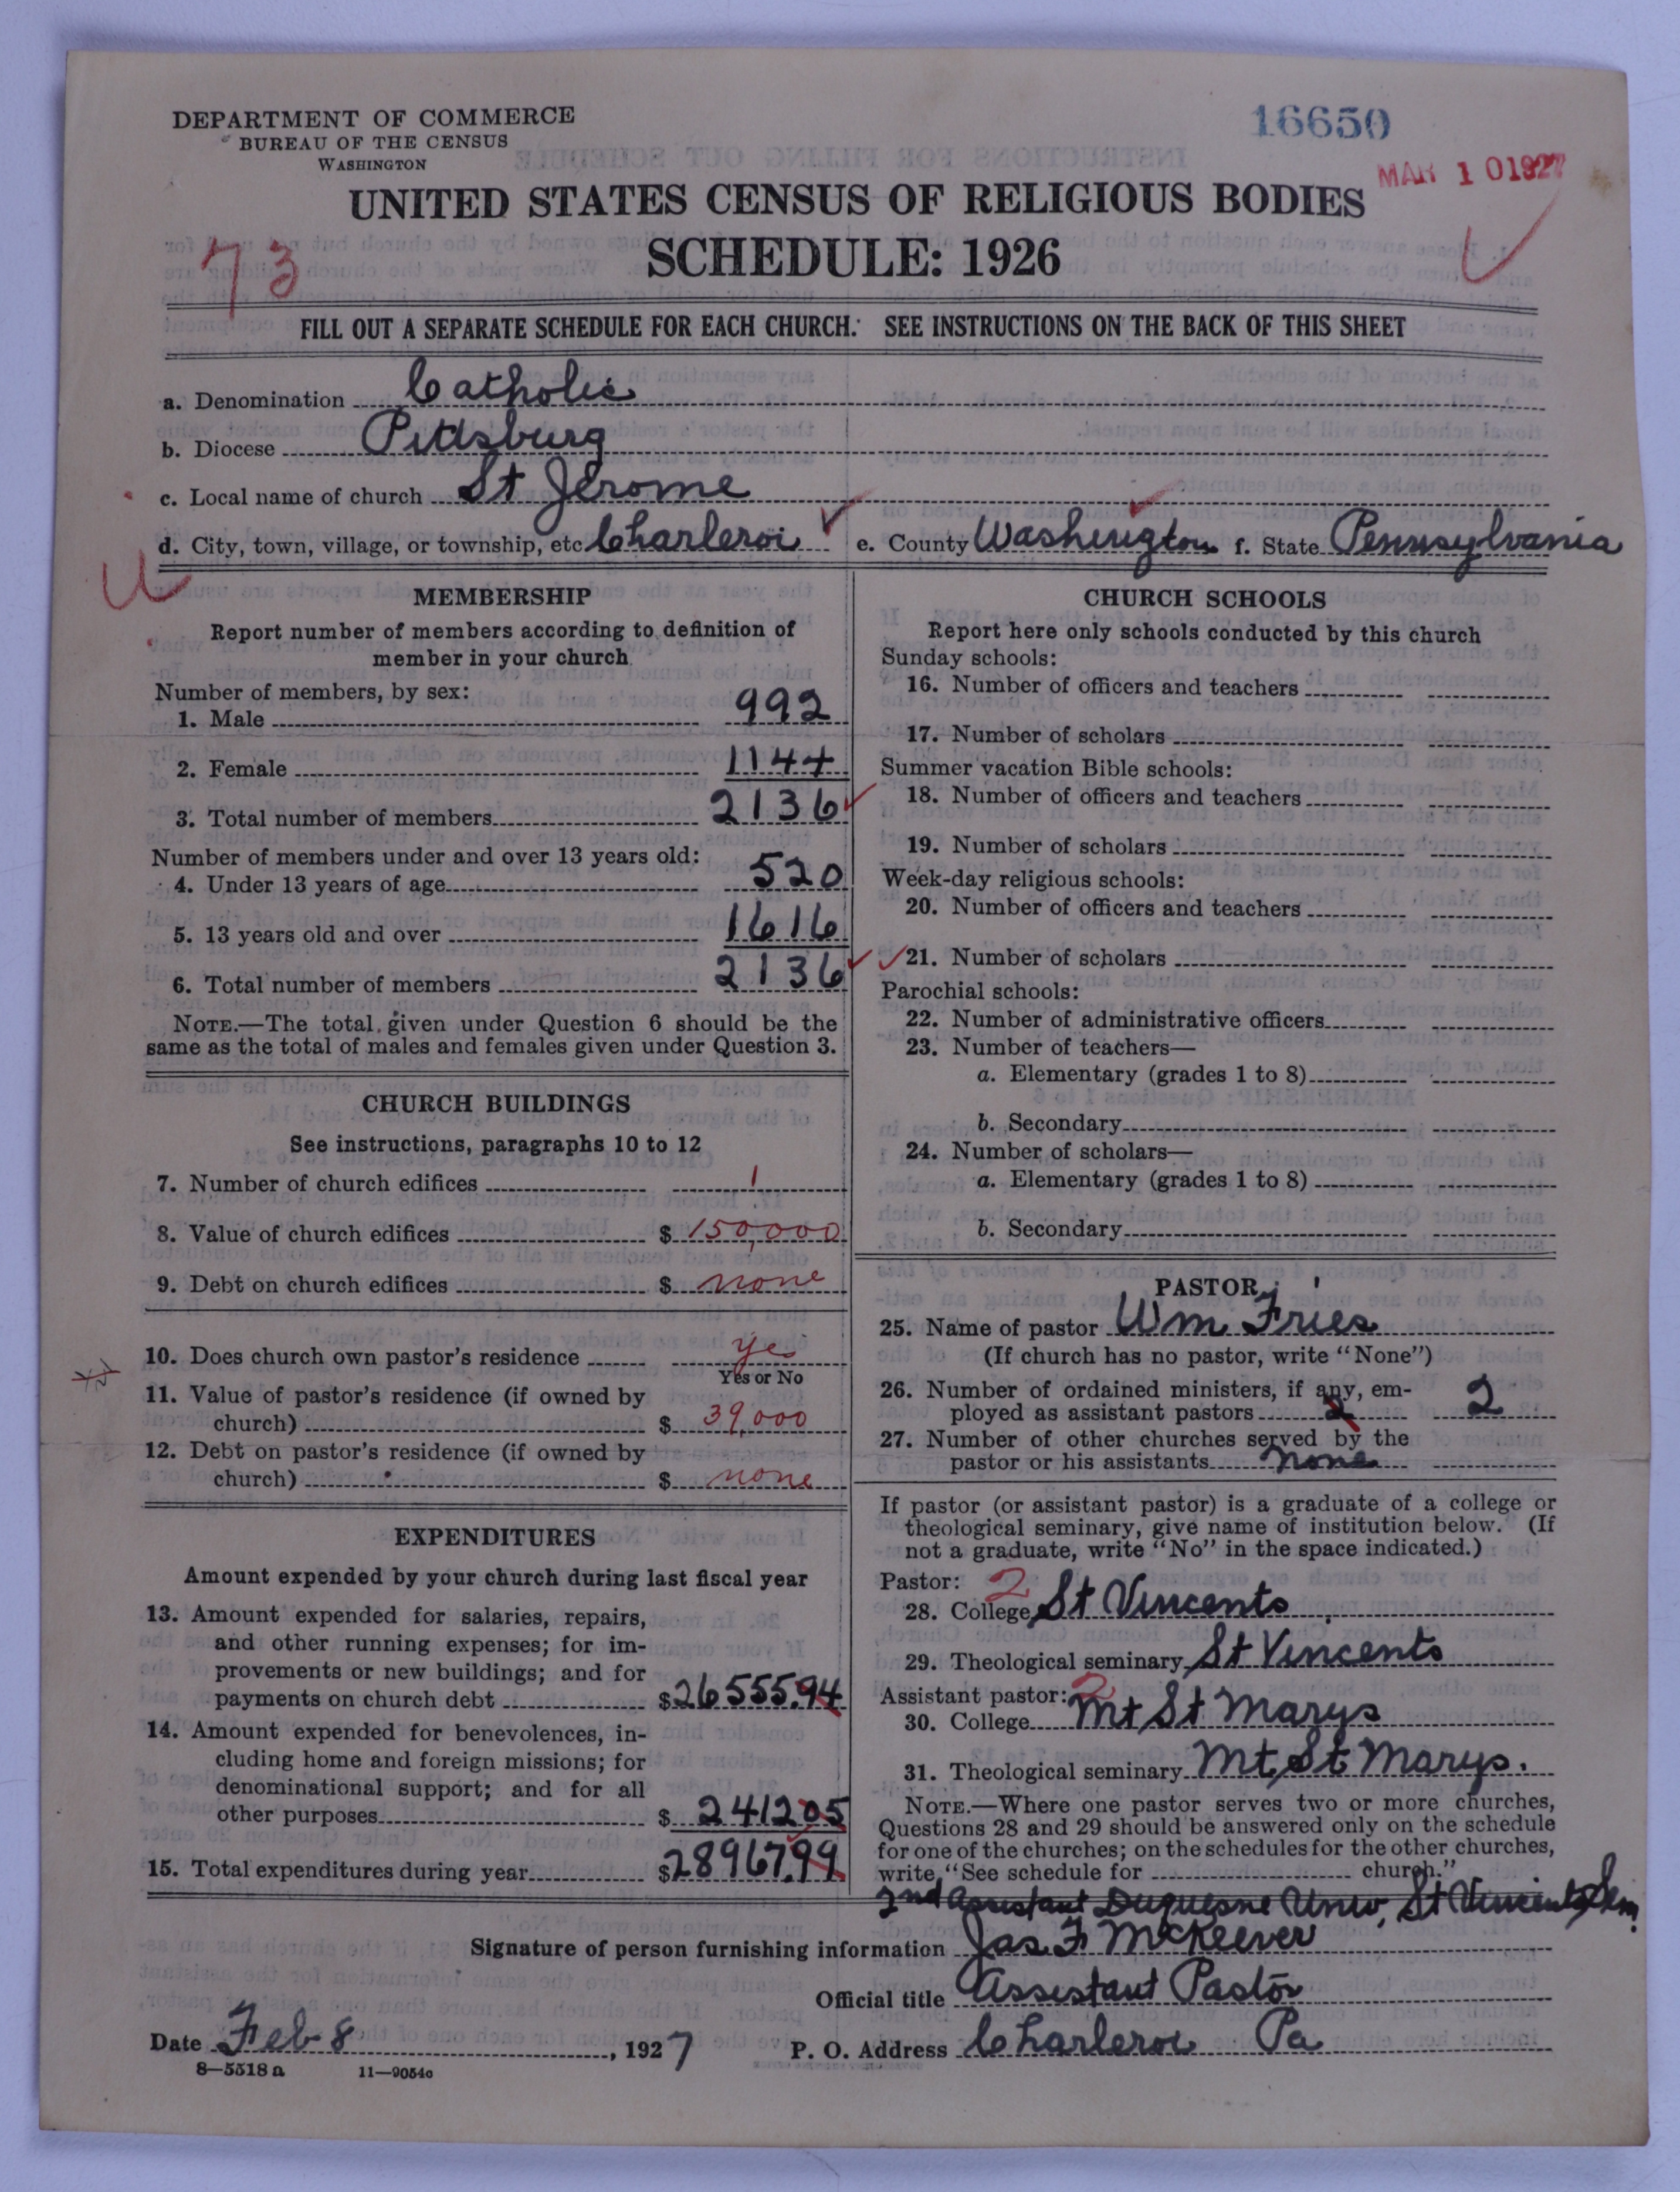 DEPARTMENT OF COMMERCE
BUREAU OF THE CENSUS
WASHINGTON
16650
MAR 10 1927
UNITED STATES CENSUS OF RELIGIOUS BODIES
SCHEDULE: 1926
73
FILL OUT A SEPARATE SCHEDULE FOR EACH CHURCH. SEE INSTRUCTIONS ON THE BACK OF THIS SHEET
a. Denomination Catholic
b. Diocese Pittsburg
c. Local name of church St Jerome
d. City, town, village, or township, etc Charleroi e. County Washington f. State Pennsylvania
MEMBERSHIP
Report number of members according to definition of
member in your church
Number of members, by sex:
1. Male 992
2. Female 1144
3. Total number of members 2136
Number of members under and over 13 years old:
4. Under 13 years of age 520
5. 13 years old and over 1616
6. Total number of members 2136
NOTE.—The total given under Question 6 should be the
same as the total of males and females given under Question 3.
CHURCH BUILDINGS
See instructions, paragraphs 10 to 12
7. Number of church edifices 1
8. Value of church edifices $ 150,000
9. Debt on church edifices $ none
10. Does church own pastor's residence yes
Yes or No
11. Value of pastor's residence (if owned by
church) $ 39,000
12. Debt on pastor's residence (if owned by
church) $ none
EXPENDITURES
Amount expended by your church during last fiscal year
13. Amount expended for salaries, repairs,
and other running expenses; for im-
provements or new buildings; and for
payments on church debt $26555.94
14. Amount expended for benevolences, in-
cluding home and foreign missions; for
denominational support; and for all
other purposes $ 241205
15. Total expenditures during year $28967.99
CHURCH SCHOOLS
Report here only schools conducted by this church
Sunday schools:
16. Number of officers and teachers
17. Number of scholars
Summer vacation Bible schools:
18. Number of officers and teachers
19. Number of scholars
Week-day religious schools:
20. Number of officers and teachers
21. Number of scholars
Parochial schools:
22. Number of administrative officers
23. Number of teachers—
a. Elementary (grades 1 to 8)
b. Secondary
24. Number of scholars—
a. Elementary (grades 1 to 8)
b. Secondary
PASTOR
25. Name of pastor Wm Fries
(If church has no pastor, write "None")
26. Number of ordained ministers, if any, em-
ployed as assistant pastors 2 2
27. Number of other churches served by the
pastor or his assistants none
If pastor (or assistant pastor) is a graduate of a college or
theological seminary, give name of institution below. (If
not a graduate, write "No" in the space indicated.)
Pastor: 2
28. College St Vincents
29. Theological seminary St Vincents
Assistant pastor: 2
30. College Mt St Marys
31. Theological seminary Mt St Marys.
NOTE.—Where one pastor serves two or more churches,
Questions 28 and 29 should be answered only on the schedule
for one of the churches; on the schedules for the other churches,
write "See schedule for church."
2nd Assistant Duquesne Univ, St Vincents Sem.
Signature of person furnishing information Jas. F McKeever
Official title Assistant Pastor
Date Feb 8, 1927 P. O. Address Charleroi Pa
8—5518 a 11—9054o